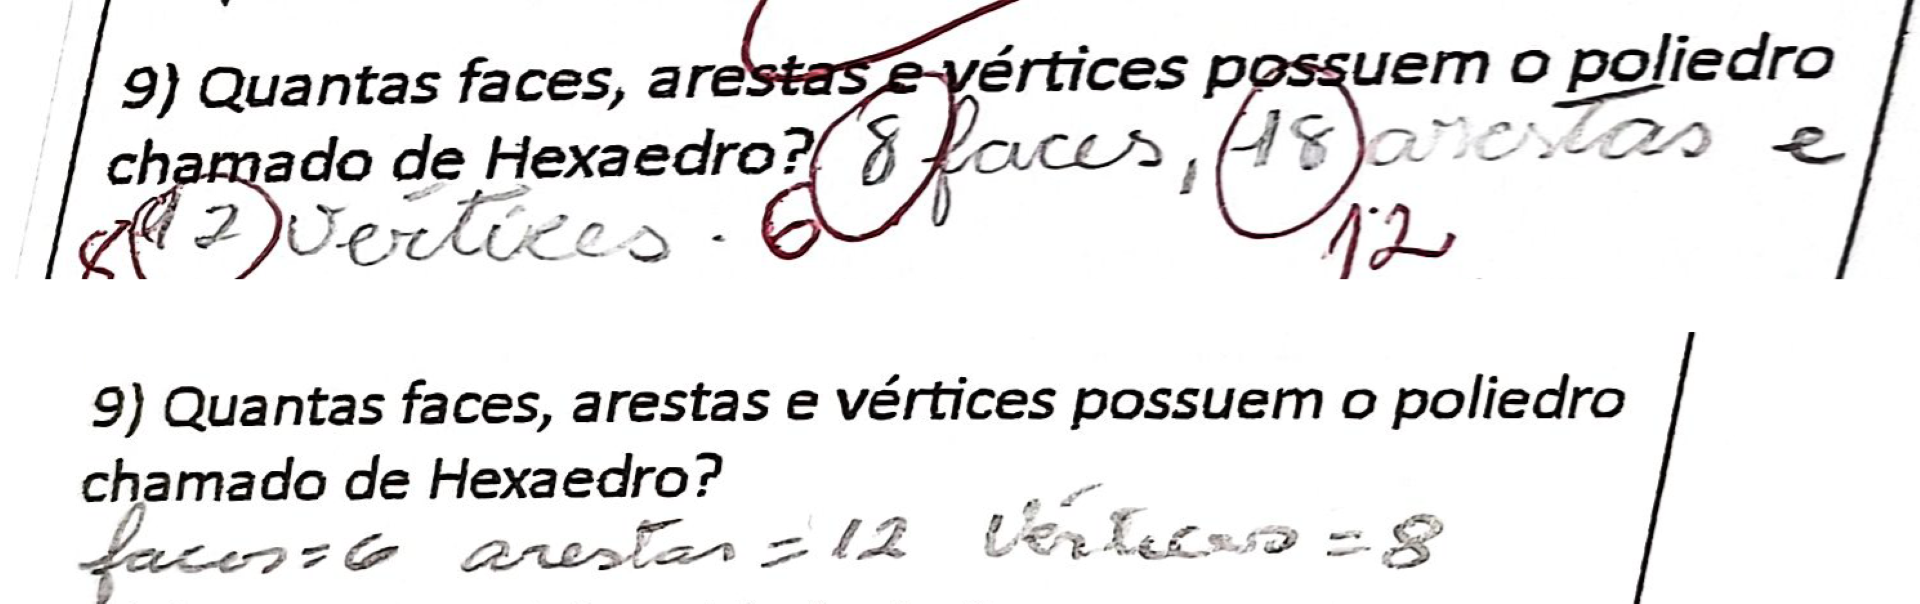 9) Quantas faces, arestas e vértices possuem o poliedro
chamado de Hexaedro? 8 faces, 18 arestas e
8 12 vértices. 6 12
9) Quantas faces, arestas e vértices possuem o poliedro
chamado de Hexaedro?
faces = 6 arestas = 12 vértices = 8